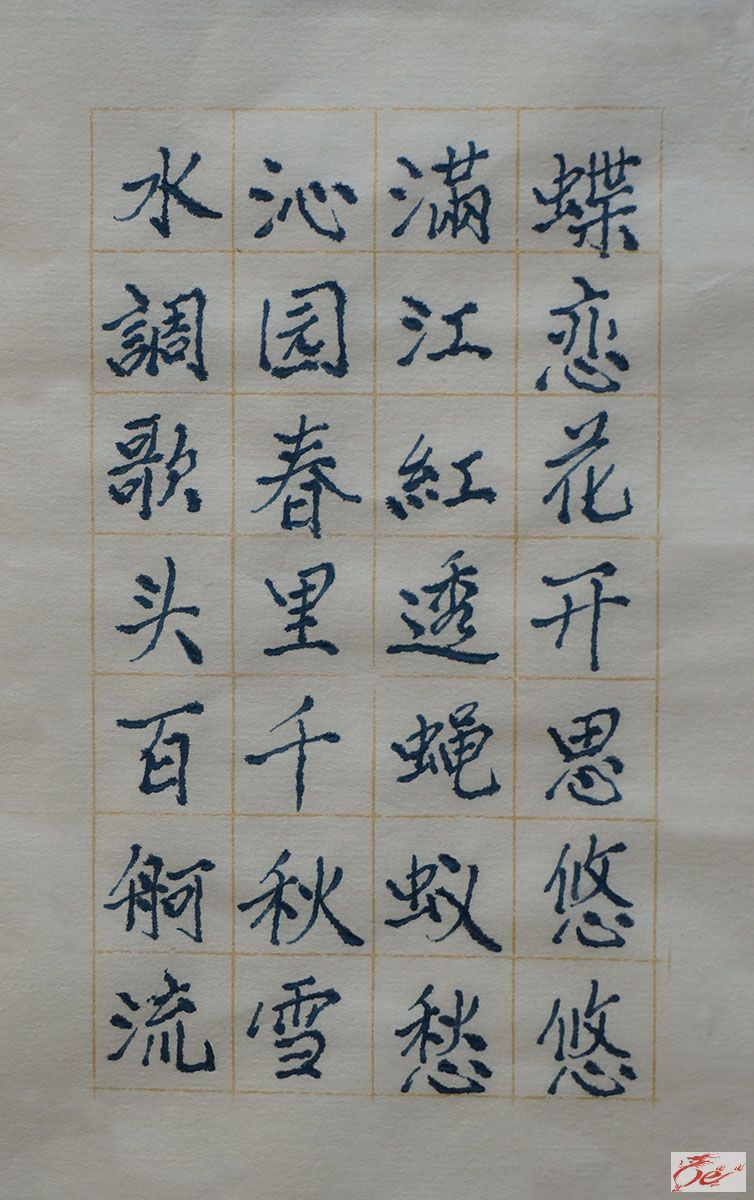 蝶恋花开思悠悠
滿江紅透蝇蚁愁
沁园春里千秋雪
水調歌头百舸流